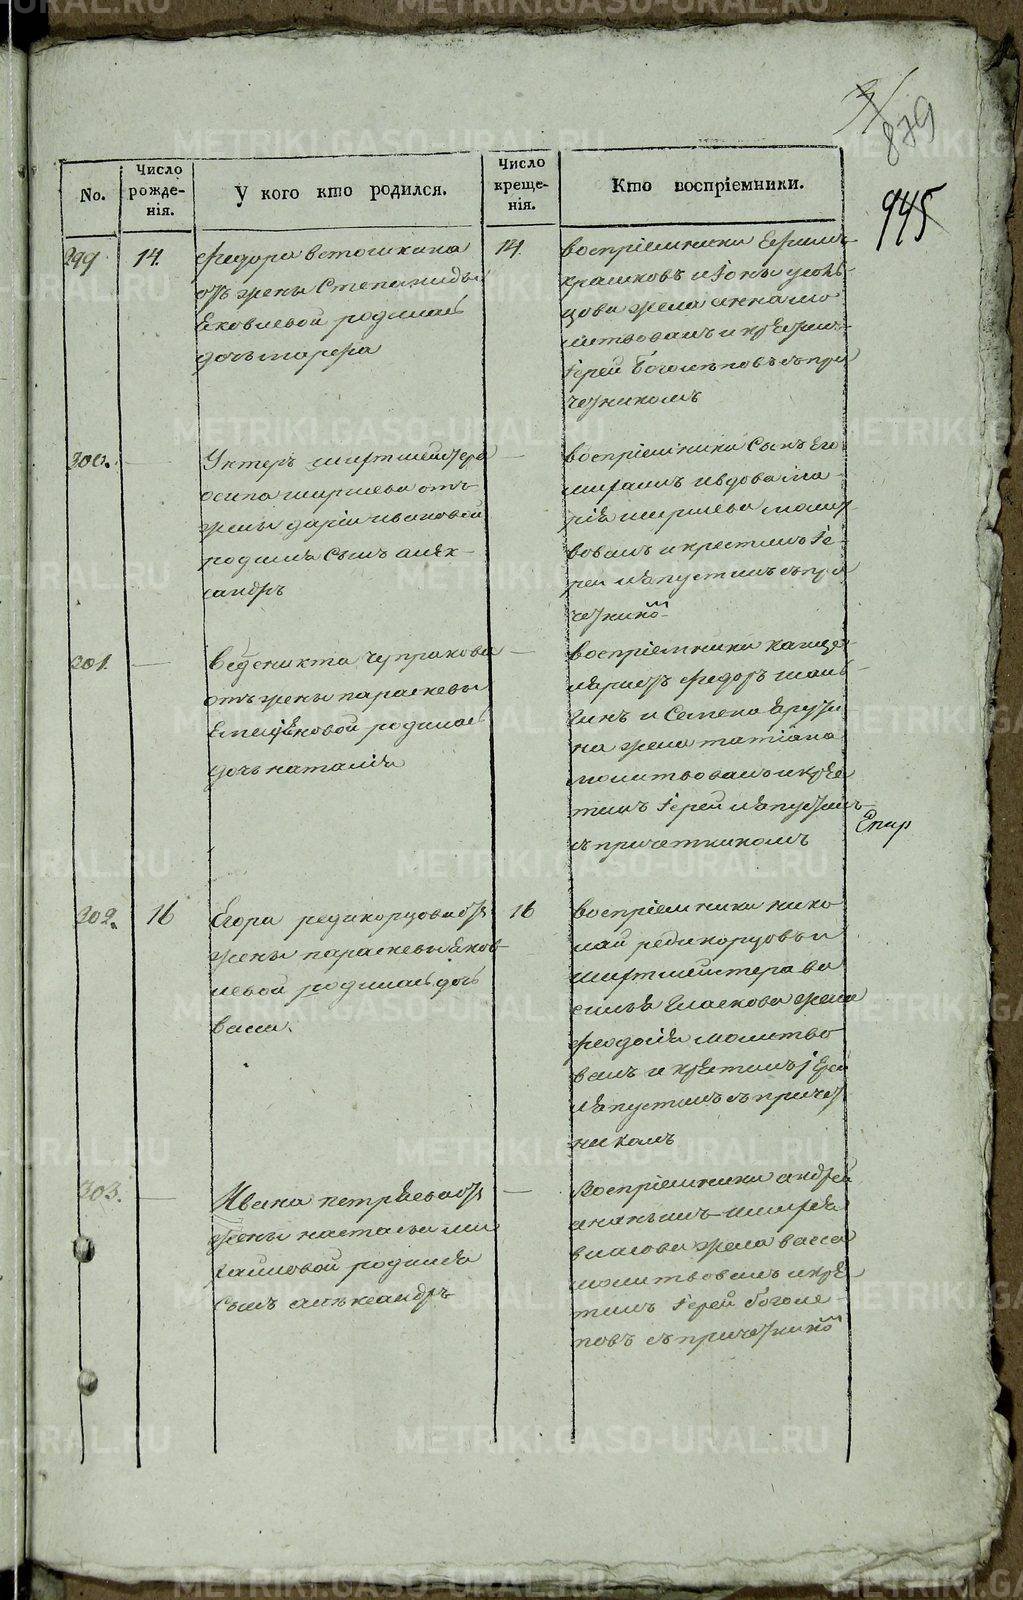 879
945
No.
Число рожде-нія.
У кого кто родился.
Число креще-нія.
Кто воспріемники.
299
14.
Федора ветошкина
отъ жены Степаниды
Яковлевой родилась
дочь марфа
14.
воспріемники Ефимъ
жена анна мо
литвовалъ и крестилъ
Іерей Боголеповъ съ при
четникомъ
300.
Унтеръ шихтмейстера
осипа ширяева отъ
жены даріи ивановой
родился сынъ алек-
сандръ
воспріемники сынъ Его
михаилъ и вдова ма
рія ширяева молит
вовалъ и крестилъ Іе-
рей Ляпустинъ съ при
четникомъ
301.
Ведениктa чупракова
отъ жены параскевы
Емельяновой родилась
дочь наталія
воспріемники канце
ляристъ федоръ
и Семена
на жена татіана
молитвовалъ и кре
тилъ Іерей Ляпустинъ
съ причетникомъ
302.
16
Егора редикорцова отъ
жены параскевы Яков
левой родилась дочь
васса.
16
воспріемники нико
лай редикорцовъ и
шихтмейстера ва
силья жена
феодосія молитво
валъ и кретилъ іерей
Ляпустинъ съ причет
никомъ
303.
Ивана петряева отъ
жены настасьи ми
хайловой родился
сынъ александръ
Воспріемники андрей
ананьинъ
власова жена васса
молитвовалъ и кре
тилъ Іерей боголе-
повъ съ причетникомъ
METRIKI.GASO-URAL.RU